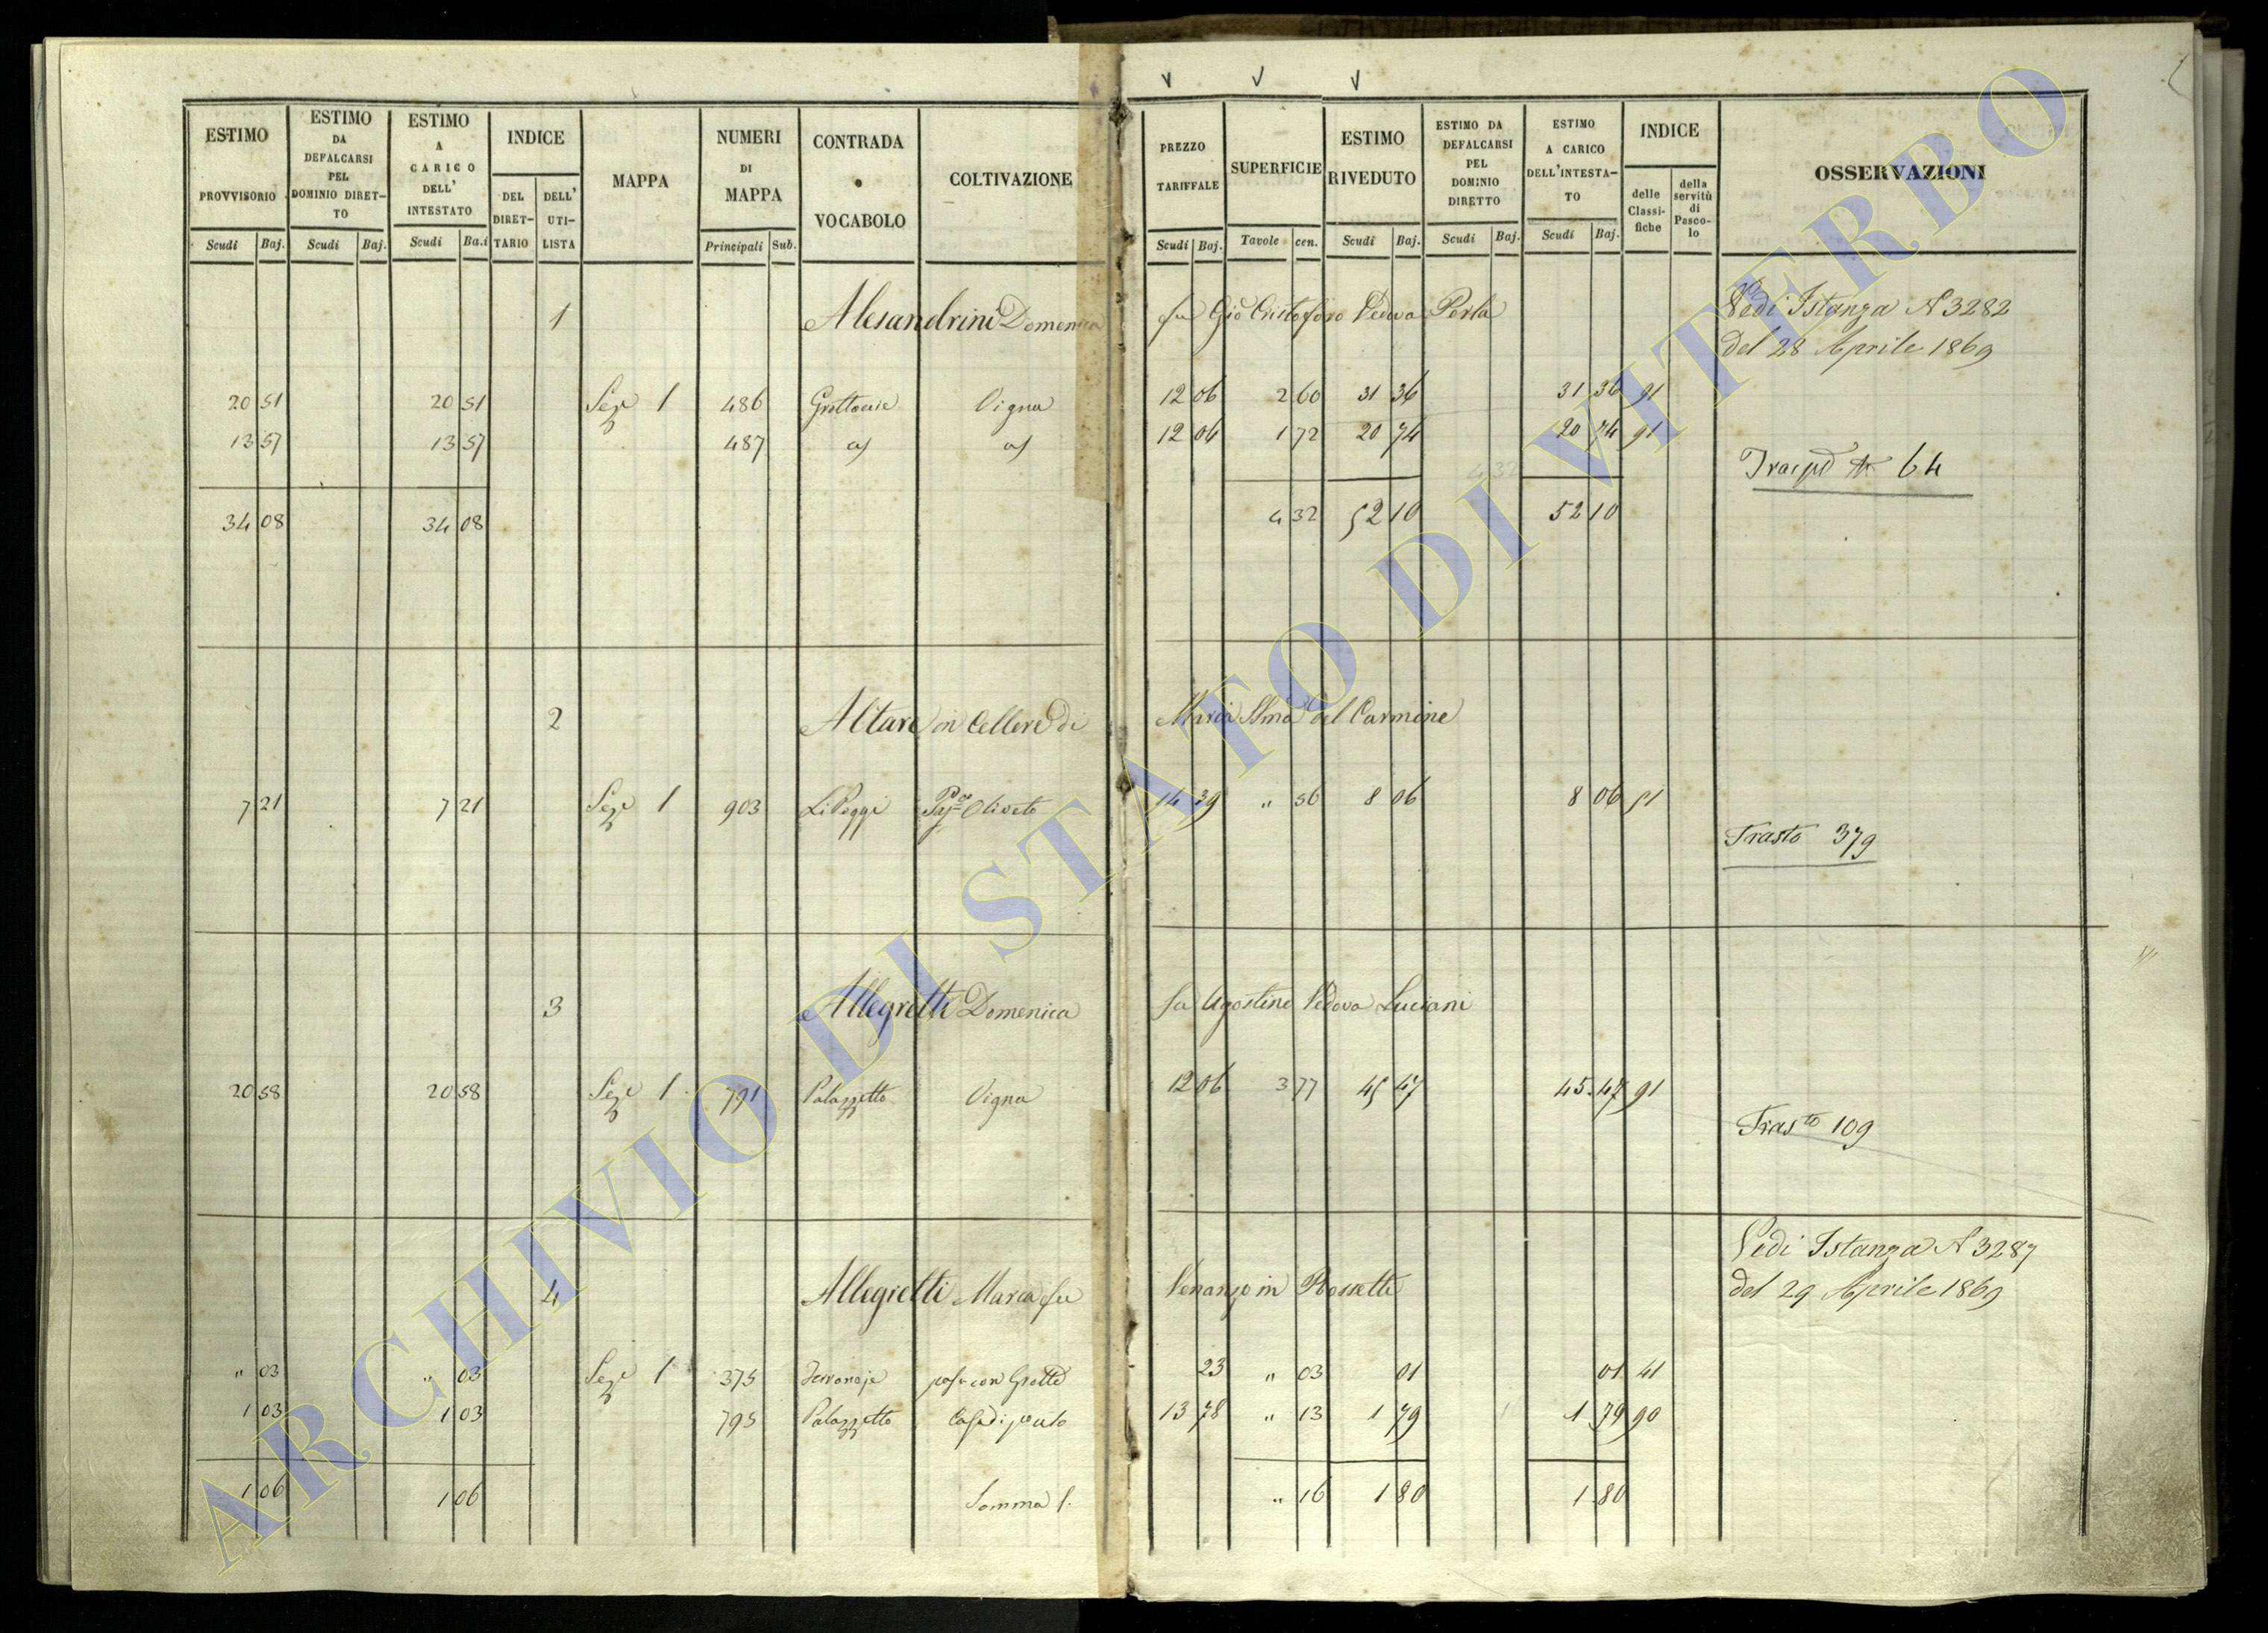 ESTIMO PROVVISORIO Scudi Baj.
ESTIMO DA DEFALCARSI PEL DOMINIO DIRET-TO Scudi Baj.
ESTIMO A CARICO DELL' INTESTATO Scudi Ba.i
INDICE DEL DIRET-TARIO DELL' UTI-LISTA
MAPPA
NUMERI DI MAPPA Principali Sub.
CONTRADA o VOCABOLO
COLTIVAZIONE
PREZZO TARIFFALE Scudi Baj.
SUPERFICIE Tavole cen.
ESTIMO RIVEDUTO Scudi Baj.
ESTIMO DA DEFALCARSI PEL DOMINIO DIRETTO Scudi Baj.
ESTIMO A CARICO DELL'INTESTA-TO Scudi Baj.
INDICE delle Classi-fiche della servitù di Pasco-lo
OSSERVAZIONI
1 Alesandrini Domenica fu Gio Cristoforo Vedova Perla
Vedi Istanza N 3282
del 28 Aprile 1869
20 51 20 51 Seze 1 486 Vigna 12 06 2 60 31 36 31 36 91
13 57 13 57 487 12 06 1 72 20 74 20 74 91
64
34 08 34 08 4 32 52 10 52 10
2 Altare in Cellere di Maria SSma del Carmine
7 21 7 21 Seze 1 903 Li Poggi Oliveto 14 39 " 56 8 06 8 06 91
Trasto 379
3 Allegretti Domenica fu Agostino Vedova Luciani
20 58 20 58 Seze 1 791 Palazzetto Vigna 12 06 3 77 45 47 45 47 91
Trasto 109
4 Allegretti Maria fu Venanzo in Rossetti
Vedi Istanza N 3287
del 29 Aprile 1869
" 03 " 03 Seze 1 375 con Grotte 23 " 03 01 01 41
1 03 1 03 795 Palazzetto 13 78 " 13 1 79 1 79 90
1 06 1 06 Somma S. " 16 1 80 1 80
ARCHIVIO DI STATO DI VITERBO